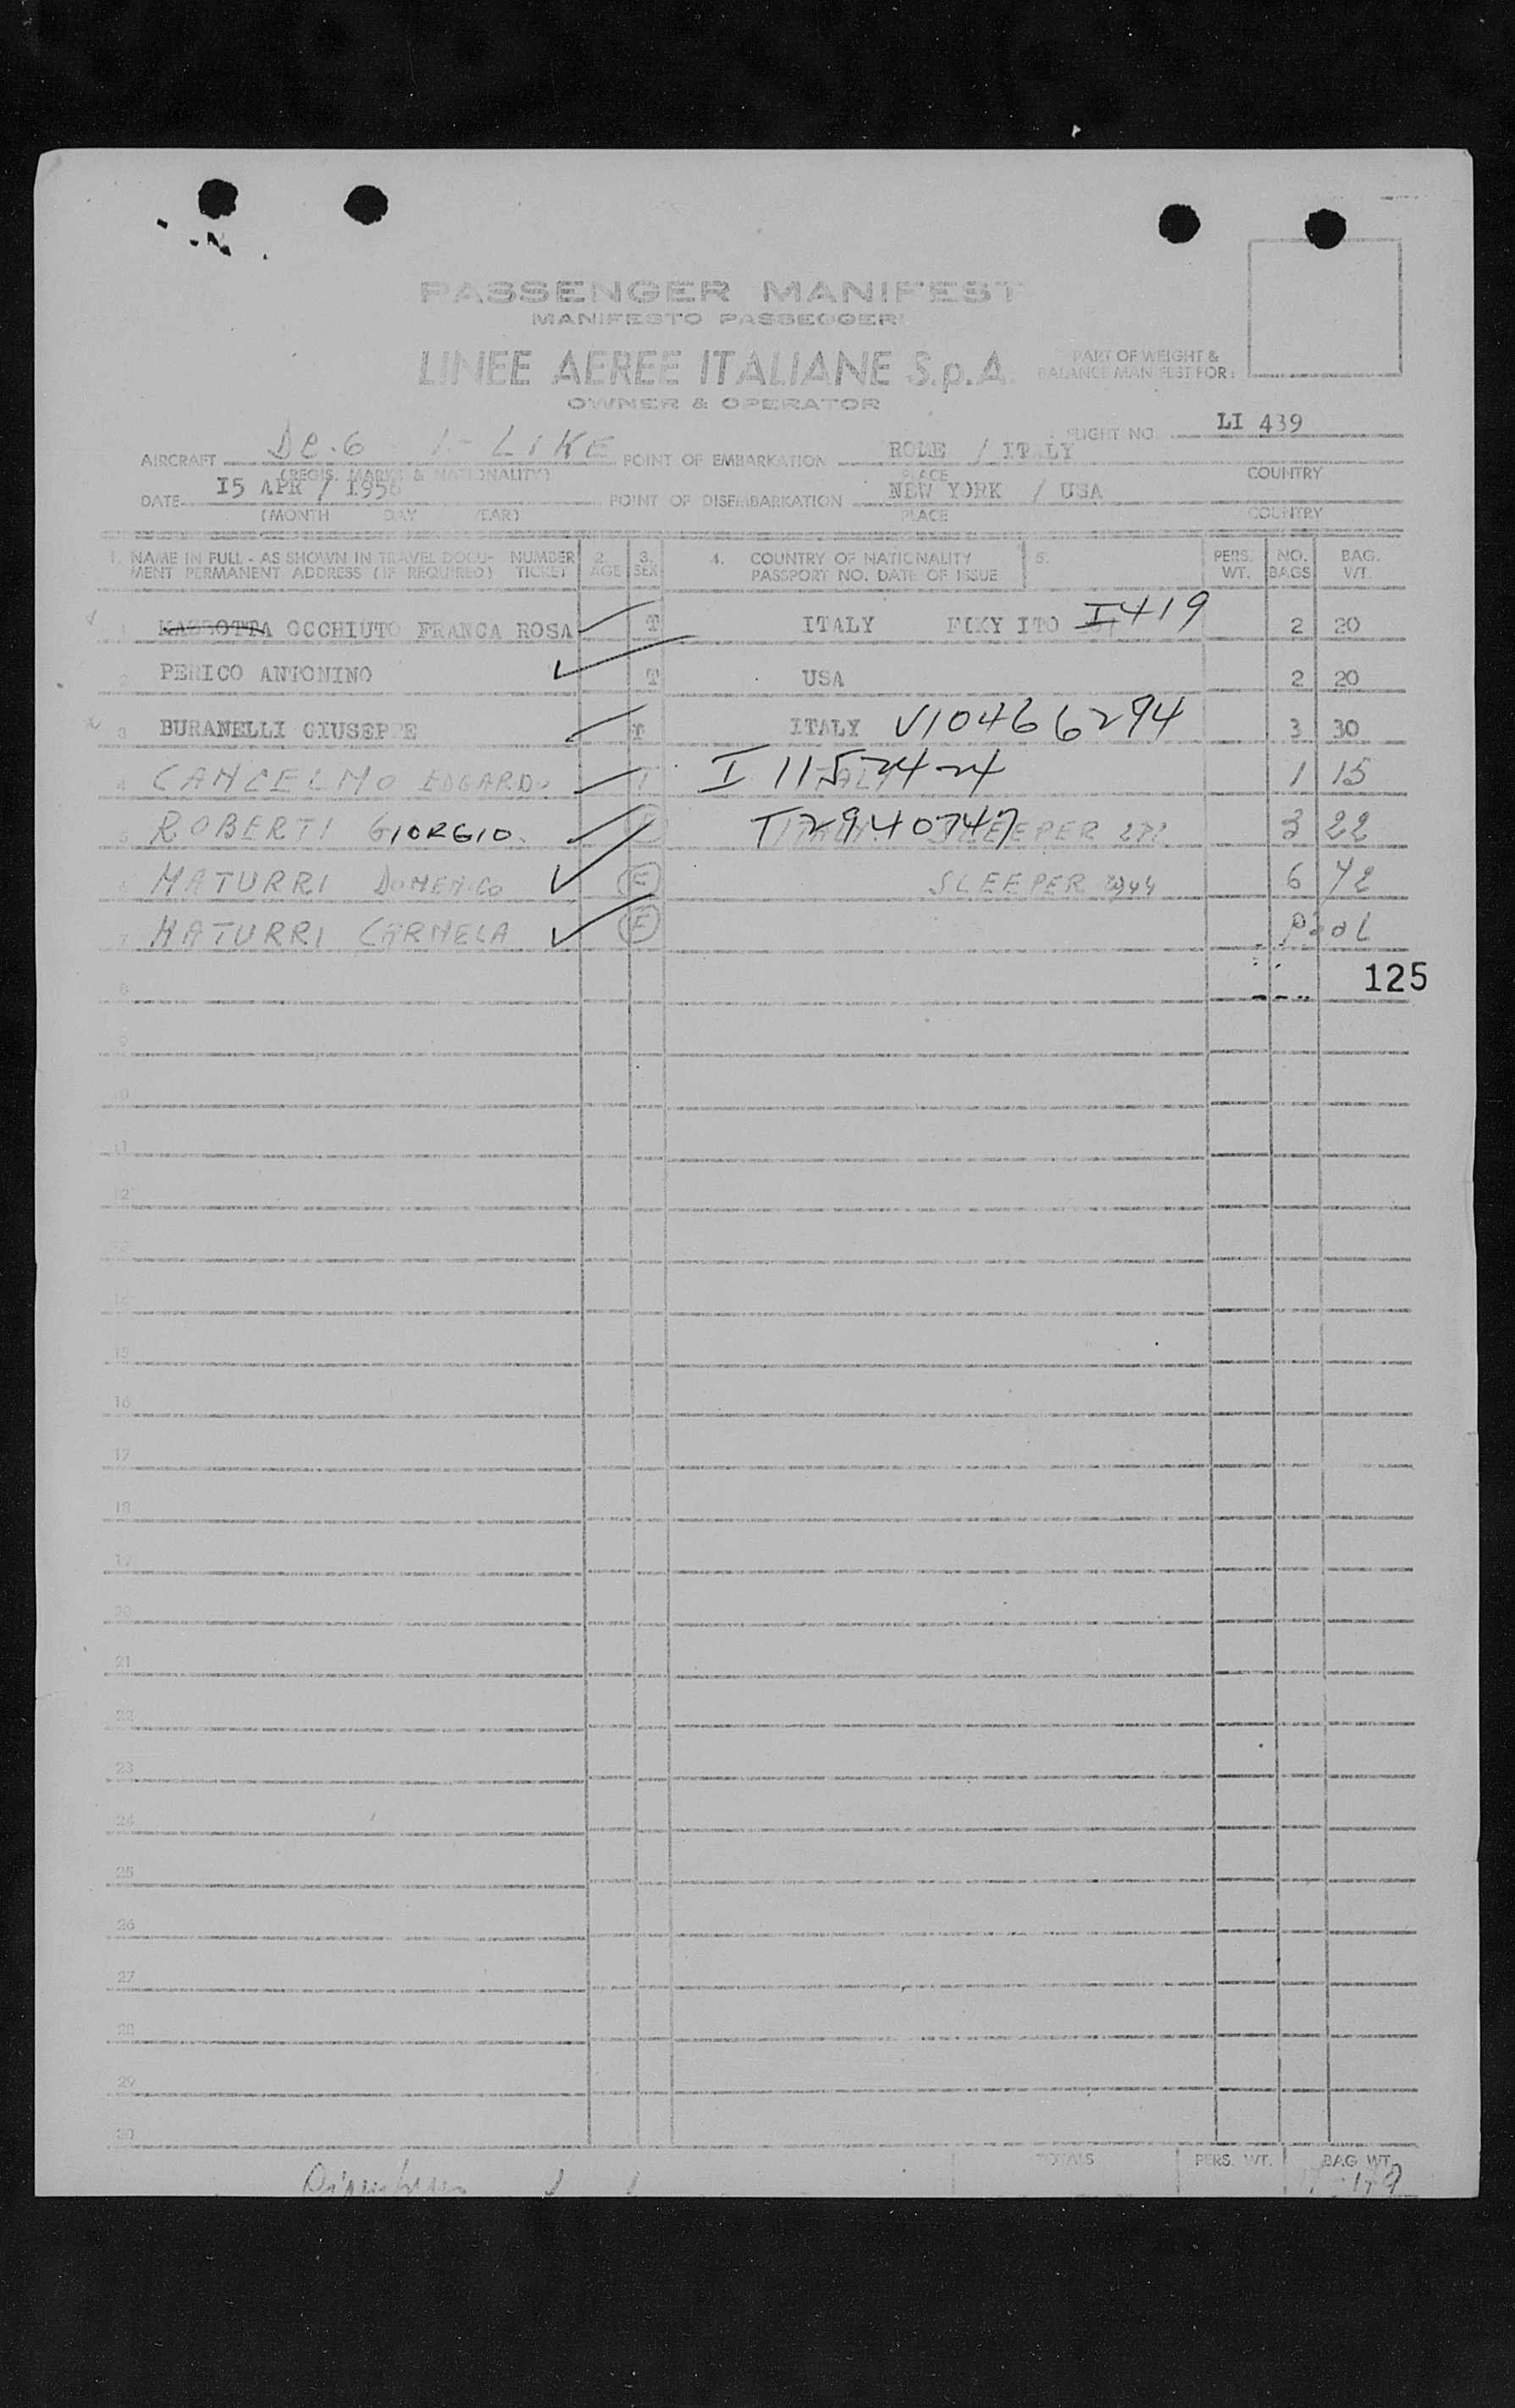 PASSENGER MANIFEST
MANIFESTO PASSEGGERI
LINEE AEREE ITALIANE S.p.A.
OWNER & OPERATOR
PART OF WEIGHT &
BALANCE MANIFEST FOR:
AIRCRAFT DC.6 I-LIKE POINT OF EMBARKATION ROME / ITALY FLIGHT NO. LI 439
(REGIS. MARKS & NATIONALITY) PLACE COUNTRY
DATE I5 APR / I956 POINT OF DISEMBARKATION NEW YORK / USA
(MONTH DAY YEAR) PLACE COUNTRY
1. NAME IN FULL - AS SHOWN IN TRAVEL DOCU- NUMBER 2. 3. 4. COUNTRY OF NATIONALITY 5. PERS. NO. BAG.
MENT PERMANENT ADDRESS (IF REQUIRED) TICKET AGE SEX PASSPORT NO. DATE OF ISSUE WT. BAGS WT.
1 MASSOTTA OCCHIUTO FRANCA ROSA T ITALY ITO I419 2 20
2 PERICO ANTONINO T USA 2 20
3 BURANELLI GIUSEPPE T ITALY V10466294 3 30
4 CANCELMO EDGARDO T I 1152424 1 15
5 ROBERTI GIORGIO T2940747 SLEEPER 3 22
6 MATURRI DOMENICO F SLEEPER 6 42
7 MATURRI CARMELA F Pool
125
8
9
10
11
12
13
14
15
16
17
18
19
20
21
22
23
24
25
26
27
28
29
30
TOTALS PERS. WT. BAG WT.